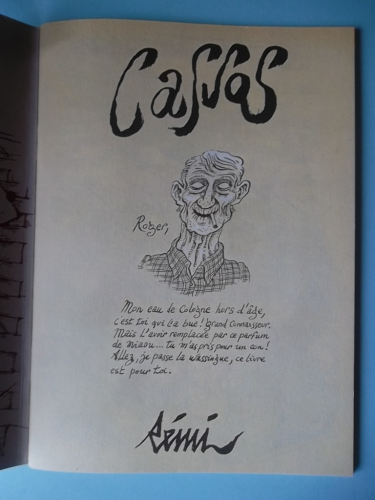 Cassos
Roger,
Mon eau de Cologne hors d'âge,
c'est toi qui l'a bue! Grand connaisseur.
Mais l'avoir remplacée par ce parfum
de miaou... Tu m'as pris pour un con!
Allez, je passe la wassingue, ce livre
est pour toi.
Rémi